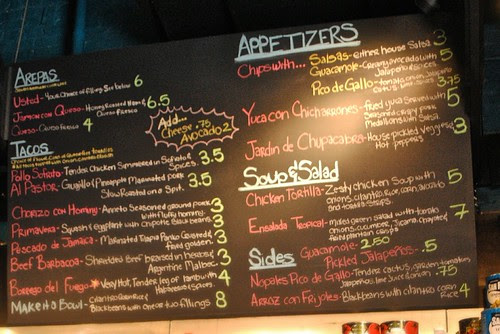 AREPAS
Usted - Your choice of filling list below 6
Jamon con Queso - Honey Roasted Ham & 6.5
Queso Fresco
Queso - Queso Fresco 4
Add...
Cheese .75
Avocado 2
TACOS
Pollo Sofrito - Tender Chicken Simmered in Sofrito & 3.5
Spices
Al Pastor - Guajillo & Pineapple Marinated pork 3.5
Slow Roasted on a Spit.
Chorizo con Hominy - Anneto Seasoned ground pork 3
with fluffy hominy.
Primavera - Squash & eggplant with chipotle black beans 3
Pescado de Jamaica - Marinated Tilapia Panko Covered, 3
fried golden.
Beef Barbacoa - Shredded Beef braised in herbs & 3
Argentine Malbec.
Borrego del Fuego - Very Hot, Tender leg of lamb with 4
Habanero & Spices
Make it a Bowl - Cilantro Cream Rice &
Black beans with one or two fillings 8
APPETIZERS
Chips with... Salsas - either house Salsa 3
Guacamole - Creamy avocado with 5
Jalapeño & Spices
Pico de Gallo - tomato, onion, Jalapeño 3.75
Yuca con Chicharrones - Fried yuca Served with 5
Seasoned crispy pork
Medallions and Salsa.
Jardin de Chupacabra - House pickled Veggies & 3
Hot peppers
Soup & Salad
Chicken Tortilla - Zesty chicken Soup with 5
onions, cilantro, rice, corn, avocado
and tortilla Strips.
Ensalada Tropical - mixed green salad with tomato 7
onions, cucumber, Jicama, Chopped
fried plantain crisps
Sides
Guacamole - 2.50
Pickled Jalapeños - .5
Nopales Pico de Gallo - Tender cactus, garden tomato, .75
Jalapeño, lime Juice & onion
Arroz con Frijoles - Black beans with cilantro corn 4
Rice